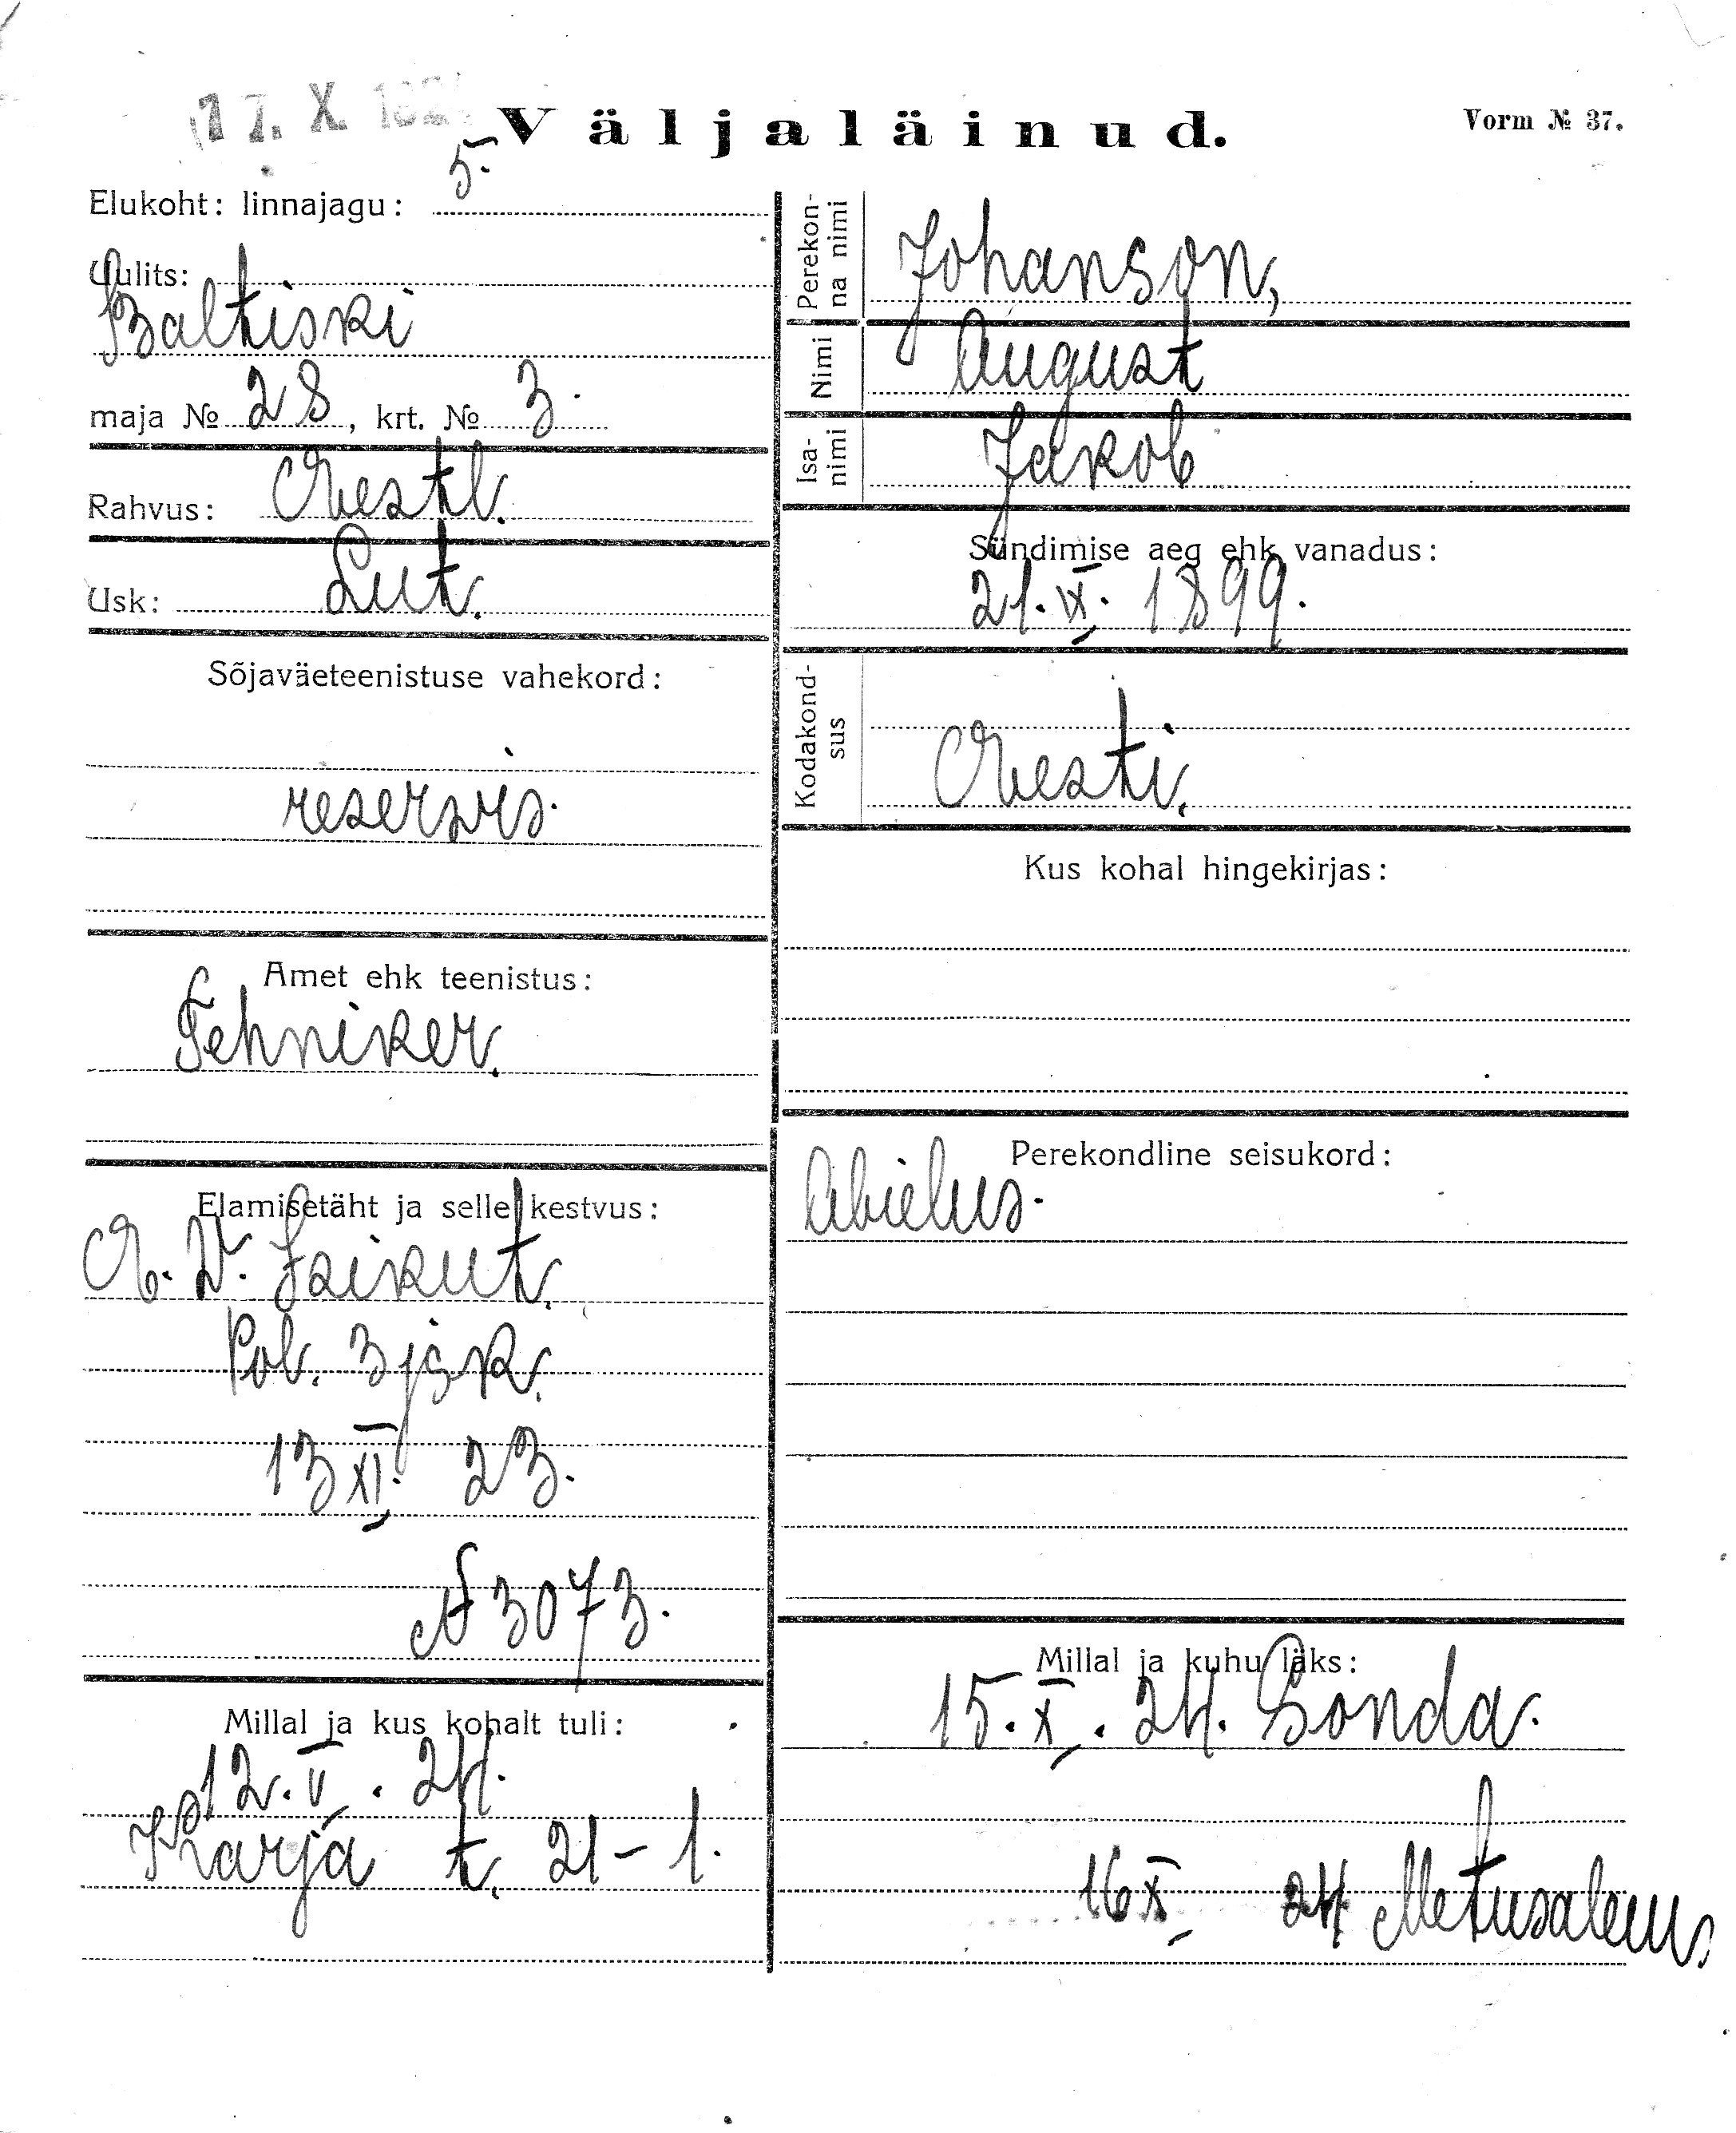 17. X
Väljaläinud.
Vorm № 37.
Elukoht: linnajagu: 5.
Uulits:
Baltiski
maja № 28, krt. № 3.
Rahvus: Eestl.
Usk: Lut.
Sõjaväeteenistuse vahekord:
reservis.
Amet ehk teenistus:
Tehniker.
Elamisetäht ja selle kestvus:
E. V. Isikut.
Pol. 3 jsk.
13 XI. 23.
№ 3073.
Millal ja kus kohalt tuli:
12. V. 24.
Karja t. 21-1.
Perekon-
na nimi
Johanson,
Nimi
August
Isa-
nimi
Jakob
Sündimise aeg ehk vanadus:
21. IX. 1899.
Kodakond-
sus
Eesti.
Kus kohal hingekirjas:
Perekondline seisukord:
Abielus.
Millal ja kuhu läks:
15. X. 24. Sonda.
16 X 24 Metusalem